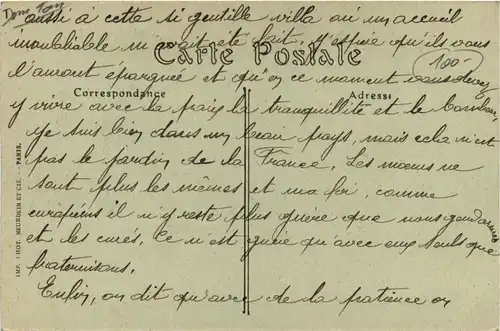 Dom Tom
aussi à cette si gentille villa où un accueil
inoubliable m'avait été fait. J'espère qu'ils vous
Carte Postale
100-
l'auront épargnée et qu'en ce moment vous devez
Correspondance
Adresse
y vivre avec la paix la tranquillité et le bonheur,
je suis bien dans un beau pays, mais cela n'est
pas le jardin de la France. Les mœurs ne
sont plus les mêmes et ma foi, comme
européens il n'y reste plus guère que nous gendarmes
et les curés. Ce n'est guère qu'avec eux seuls que
fraternisons.
Enfin, on dit qu'avec de la patience on
IMP. PHOT. NEURDEIN ET CIE. — PARIS.